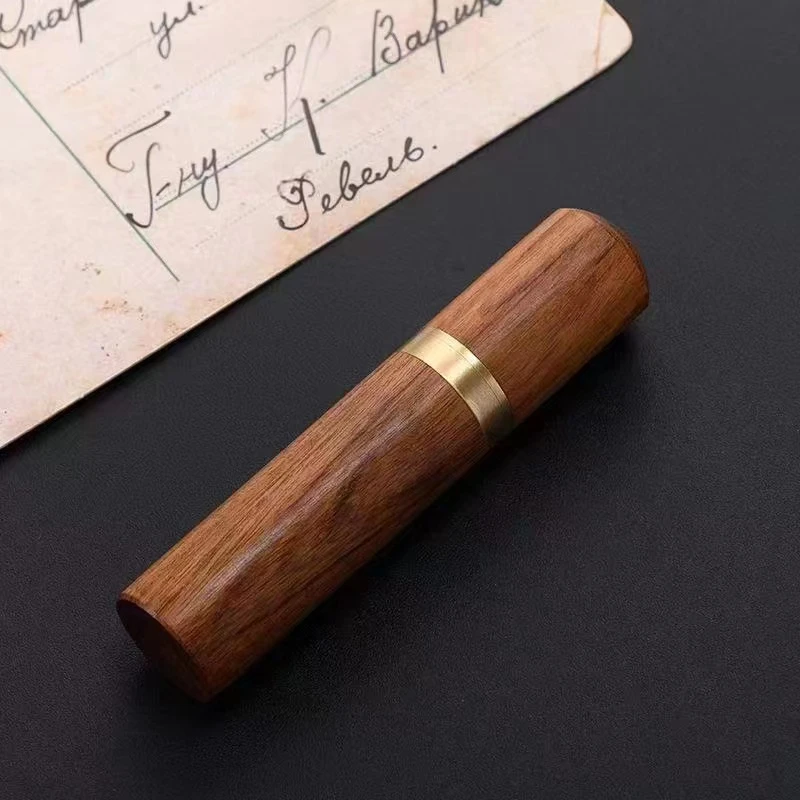 Стар
ул.
Г-ну К. Варик
Ревель.